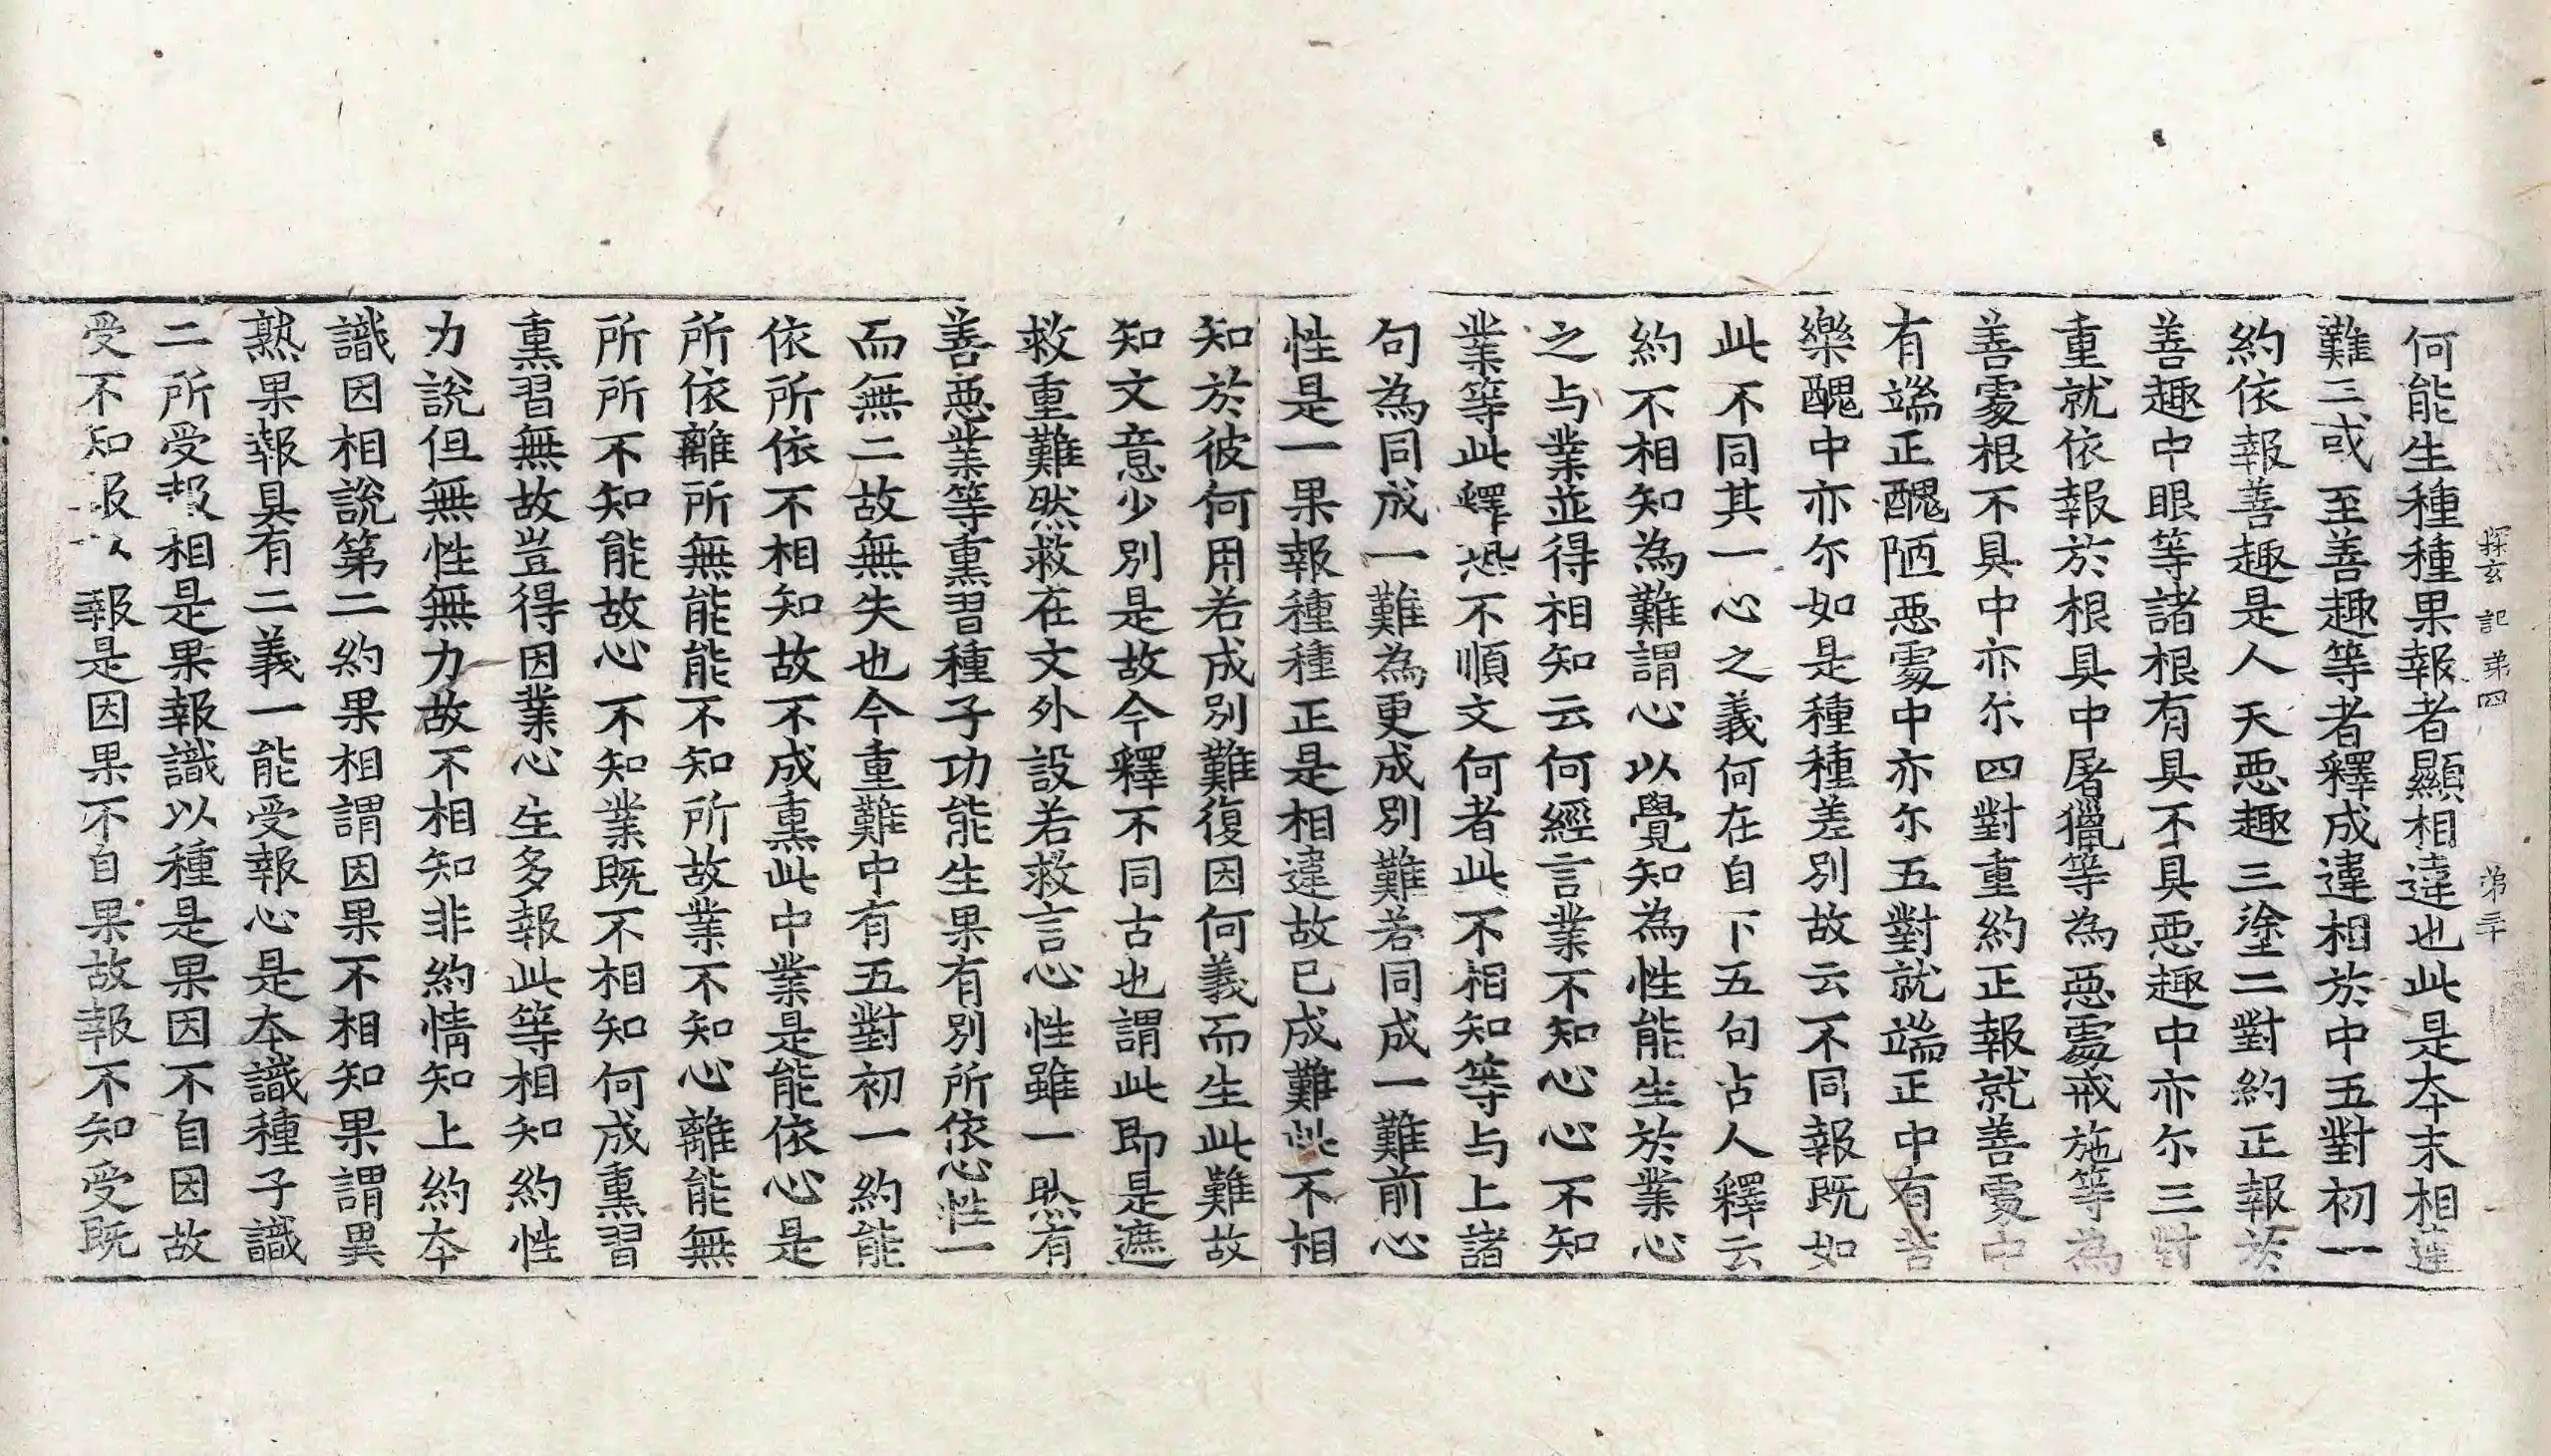 探玄記第四 第三十
何能生種種果報者顯相違也此是夲末相違
難三或至善趣等者釋成違相於中五對初一
約依報善趣是人天惡趣三塗二對約正報於
善趣中眼等諸根有具不具惡趣中亦尒三對
重就依報於根具中屠獵等為惡處戒施等為
善處根不具中亦尒四對重約正報就善處中
有端正醜陋惡處中亦尒五對就端正中有苦
樂醜中亦尒如是種種差別故云不同報既如
此不同其一心之義何在自下五句古人釋云
約不相知為難謂心以覺知為性能生於業心
之与業並得相知云何經言業不知心心不知
業等此釋恐不順文何者此不相知等与上諸
句為同成一難為更成別難若同成一難前心
性是一果報種種正是相違故已成難此不相
知於彼何用若成別難復因何義而生此難故
知文意少別是故今釋不同古也謂此即是遮
救重難然救在文外設若救言心性雖一然有
善惡業等熏習種子功能生果有別所依心性一
而無二故無失也今重難中有五對初一約能
依所依不相知故不成熏此中業是能依心是
所依離所無能能不知所故業不知心離能無
所所不知能故心不知業既不相知何成熏習
熏習無故豈得因業心生多報此等相知約性
力說但無性無力故不相知非約情知上約夲
識因相說第二約果相謂因果不相知果謂異
熟果報具有二義一能受報心是夲識種子識
二所受報相是果報識以種是果因不自因故
受不知報 報是因果不自果故報不知受既